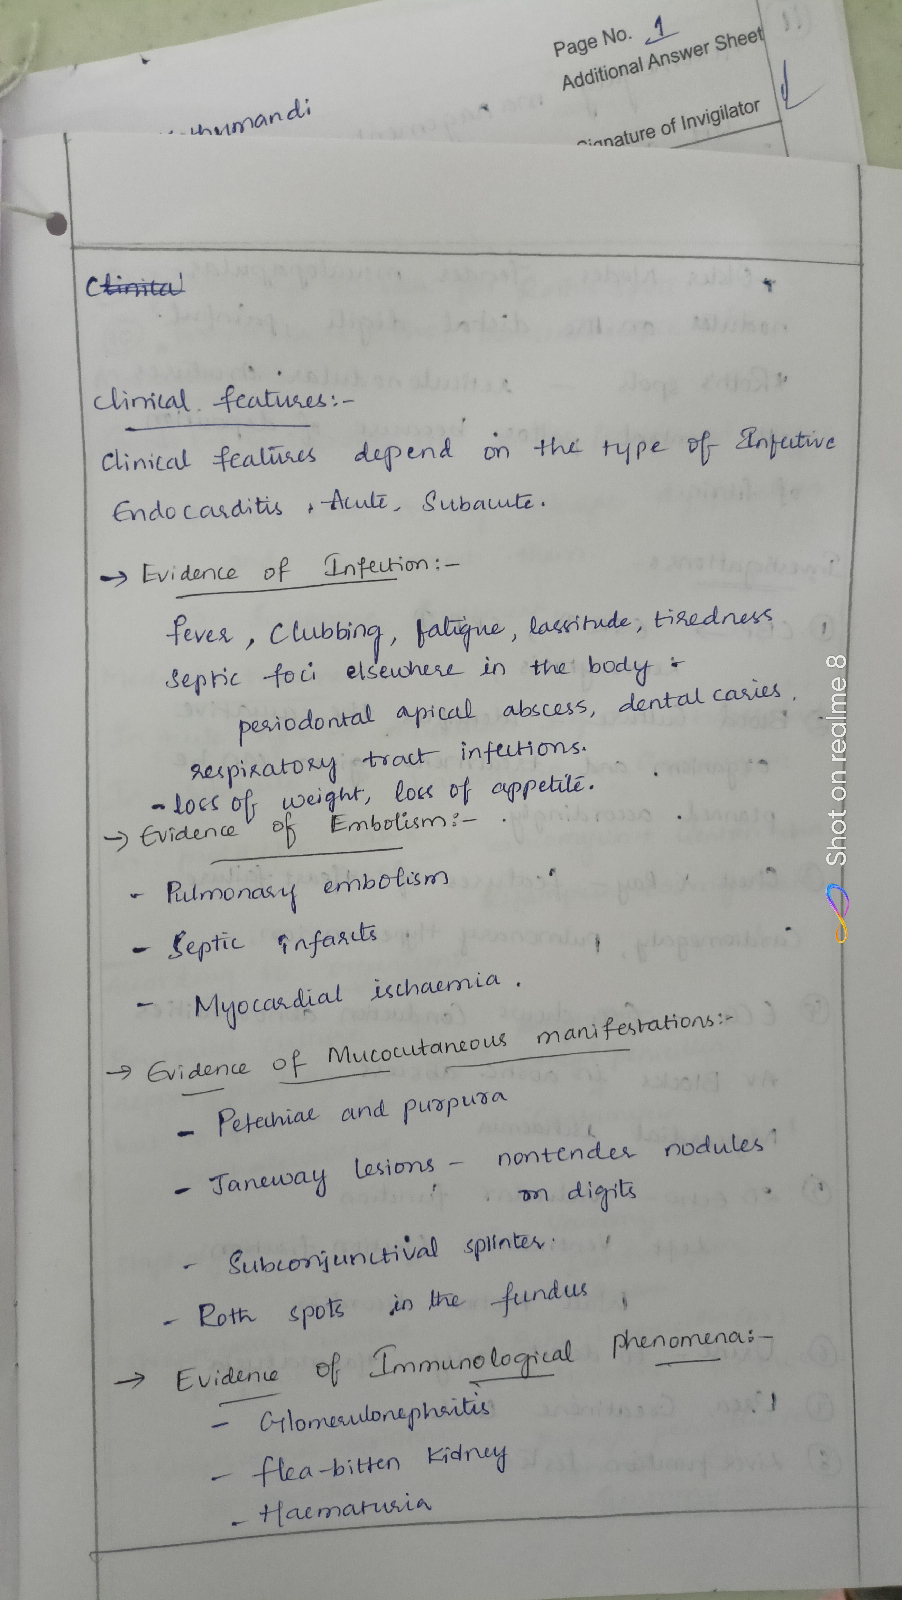 Page No. 1
Additional Answer Sheet
Signature of Invigilator
Clinical features:-
Clinical features depend on the type of Infective
Endocarditis, Acute, Subacute.
→ Evidence of Infection:-
fever, Clubbing, fatigue, lassitude, tiredness
septic foci elsewhere in the body :-
periodontal apical abscess, dental caries.
respiratory tract infections.
- loss of weight, loss of appetite.
→ Evidence of Embolism:-
- Pulmonary embolism
- Septic infarcts
- Myocardial ischaemia.
→ Evidence of Mucocutaneous manifestations:-
- Petechiae and purpura
- Janeway lesions - nontender nodules
on digits
- Subconjunctival splinter.
- Roth spots in the fundus
→ Evidence of Immunological phenomena:-
- Glomerulonephritis
- flea-bitten Kidney
- Haematuria
Shot on realme 8